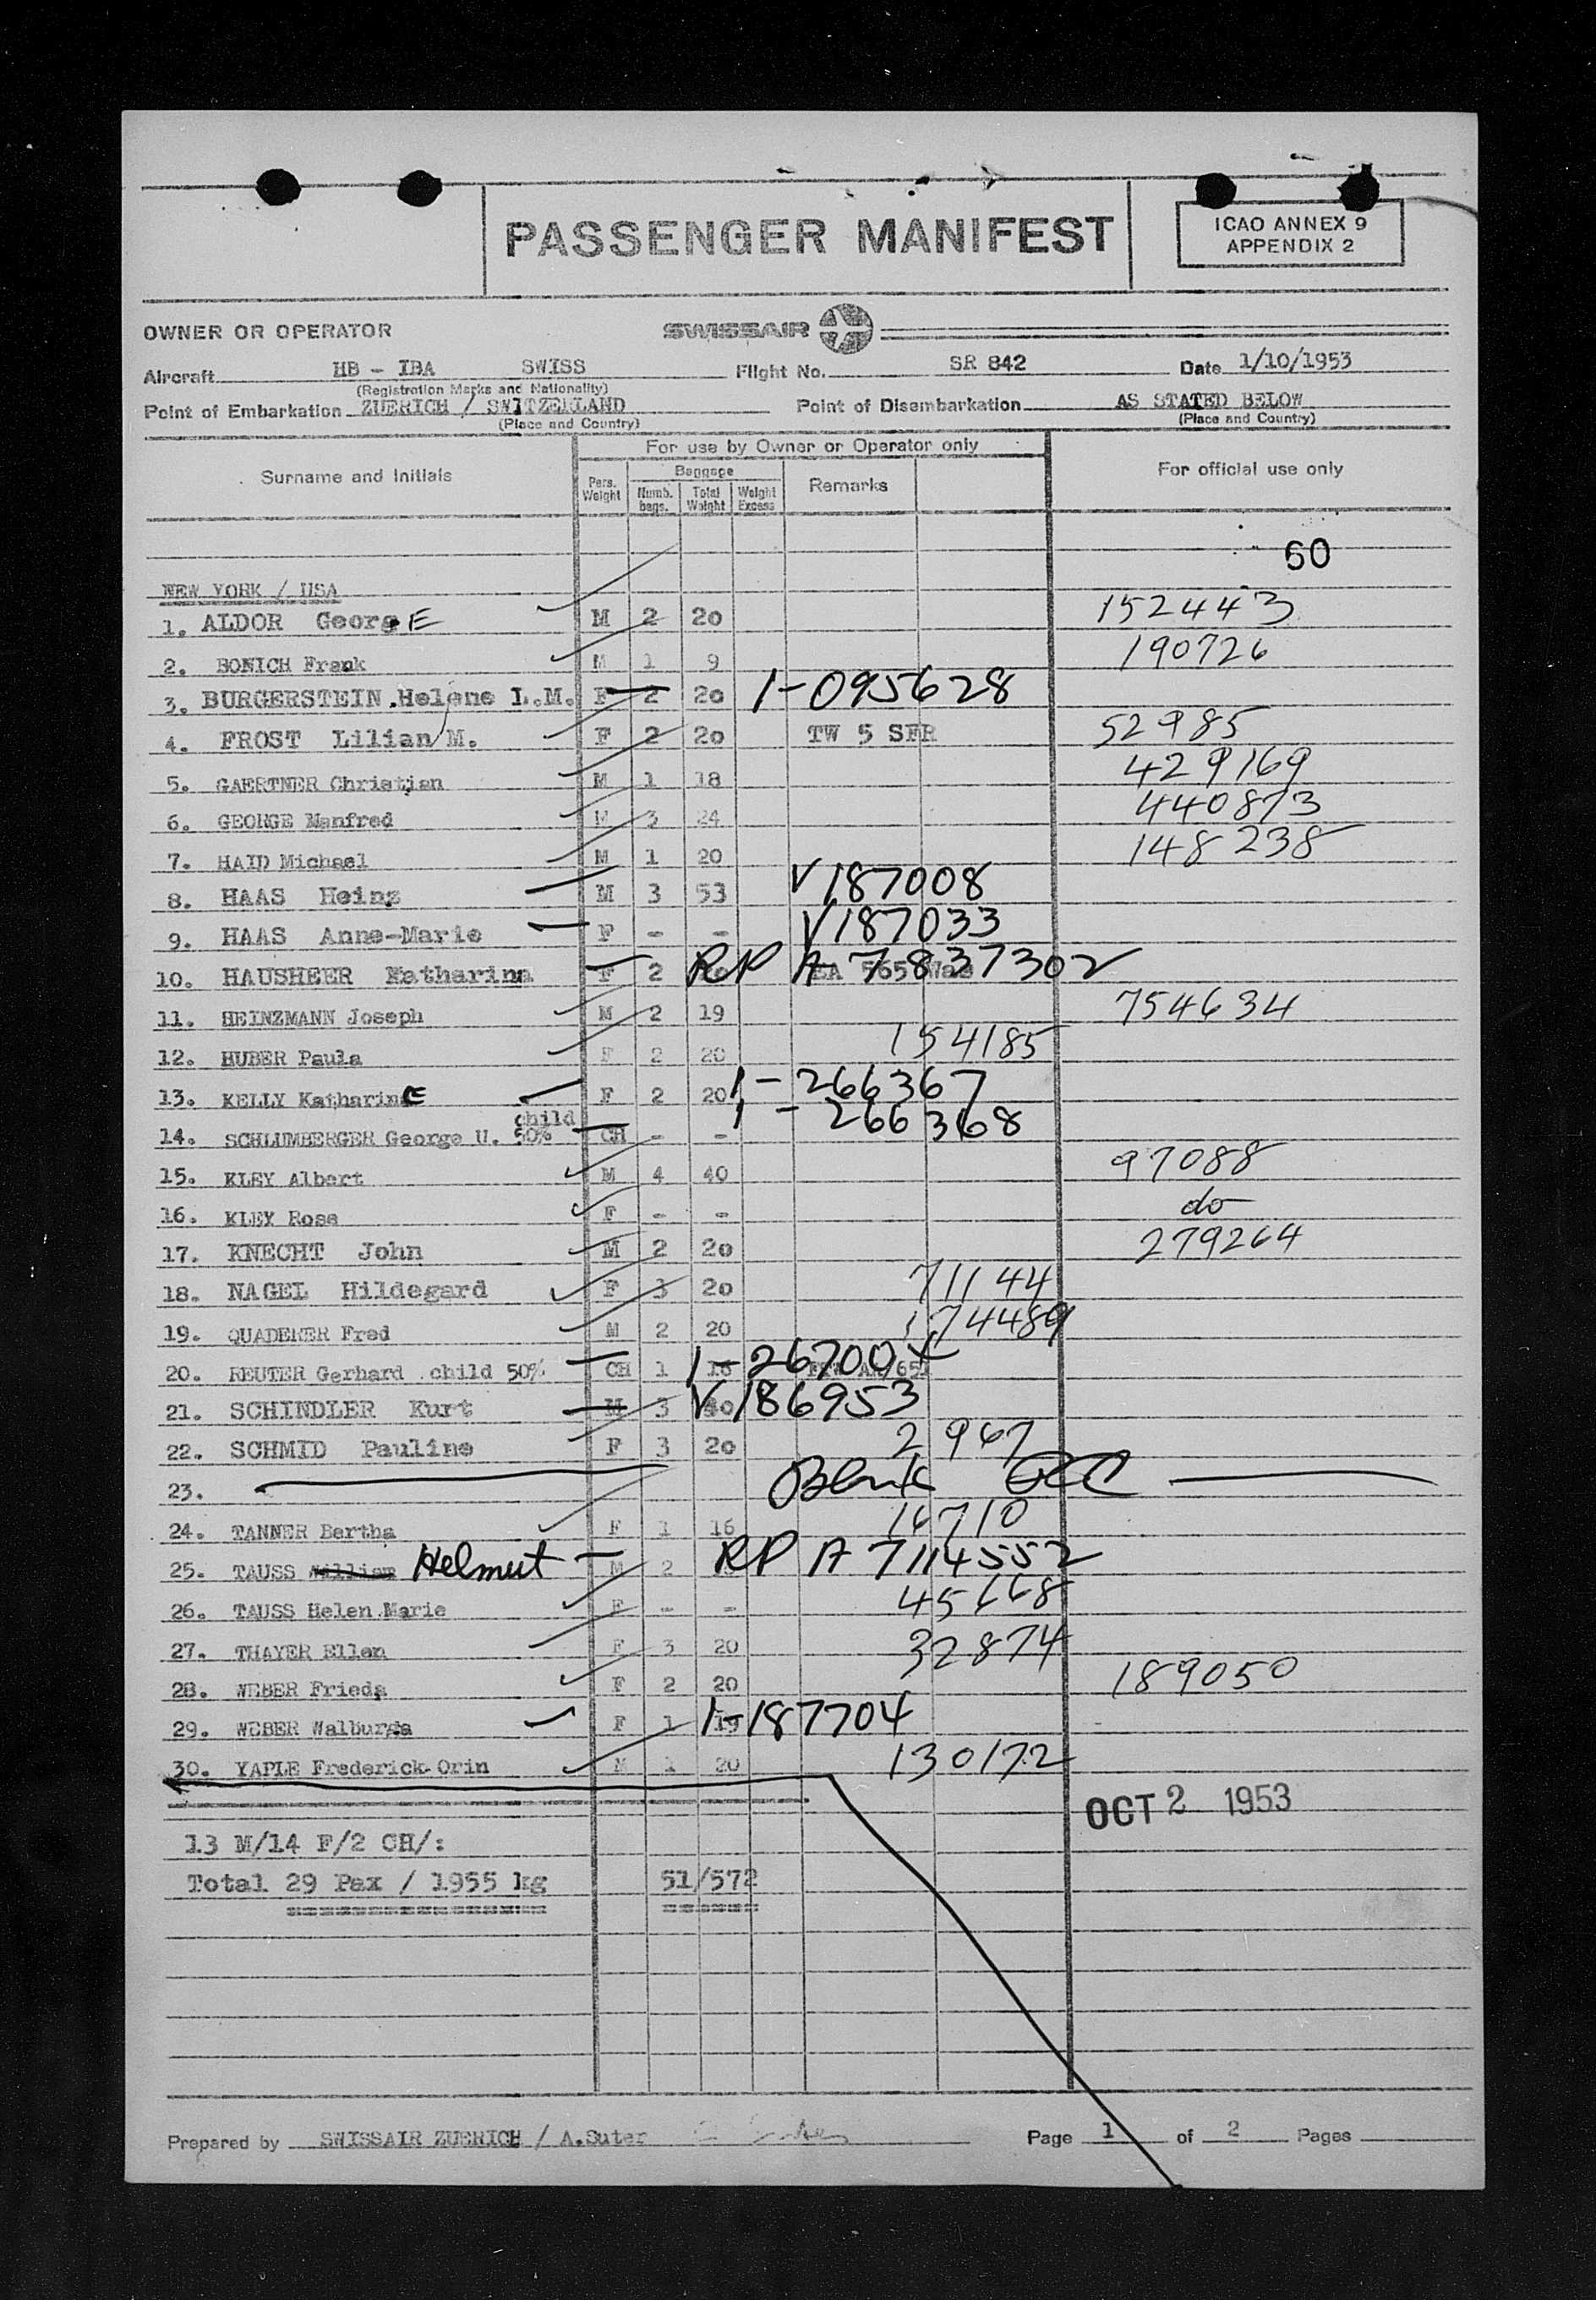 PASSENGER MANIFEST
ICAO ANNEX 9
APPENDIX 2
OWNER OR OPERATOR SWISSAIR
Aircraft HB - IBA SWISS Flight No. SR 842 Date 1/10/1953
(Registration Marks and Nationality)
Point of Embarkation ZUERICH / SWITZERLAND Point of Disembarkation AS STATED BELOW
(Place and Country) (Place and Country)
For use by Owner or Operator only
Surname and Initials Pers. Weight Baggage Numb. bags. Total Weight Weight Excess Remarks For official use only
60
NEW YORK / USA
1. ALDOR GeorgE M 2 20 152443
2. BONICH Frank M 1 9 190726
3. BURGERSTEIN Helene L.M. F 2 20 1-095628
4. FROST Lilian M. F 2 20 TW 5 SFR 52985
5. GAERTNER Christian M 1 18 429169
6. GEORGE Manfred M 3 24 440873
7. HAID Michael M 1 20 148238
8. HAAS Heinz M 3 53 V187008
9. HAAS Anne-Marie F - - V187033
10. HAUSHEER Katharina F 2 RP A 7837302
11. HEINZMANN Joseph M 2 19 754634
12. HUBER Paula F 2 20 154185
13. KELLY KatharinE F 2 20 1-266367
child
14. SCHLUMBERGER George U. 50% CH - - 1-266368
15. KLEY Albert M 4 40 97088
16. KLEY Rosa F - - do
17. KNECHT John M 2 20 279264
18. NAGEL Hildegard F 3 20 71144
19. QUADERER Fred M 2 20 174489
20. REUTER Gerhard child 50% CH 1 1-26700
21. SCHINDLER Kurt M 3 V186953
22. SCHMID Pauline F 3 20 2967
23.
24. TANNER Bertha F 1 16 16710
25. TAUSS William Helmut M 2 RP A 7114552
26. TAUSS Helen Marie F - - 45668
27. THAYER Ellen F 3 20 32874
28. WEBER Frieda F 2 20 189050
29. WEBER Walburga F 1 19 1-187704
30. YAPLE Frederick Orin M 1 20 130172
OCT 2 1953
13 M/14 F/2 CH/:
Total 29 Pax / 1955 kg 51/572
Prepared by SWISSAIR ZUERICH / A.Suter Page 1 of 2 Pages